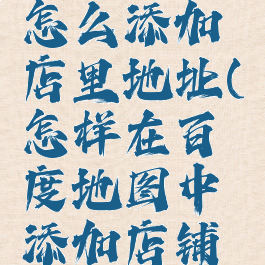 怎么添加
店里地址(
怎样在百
度地图中
添加店铺